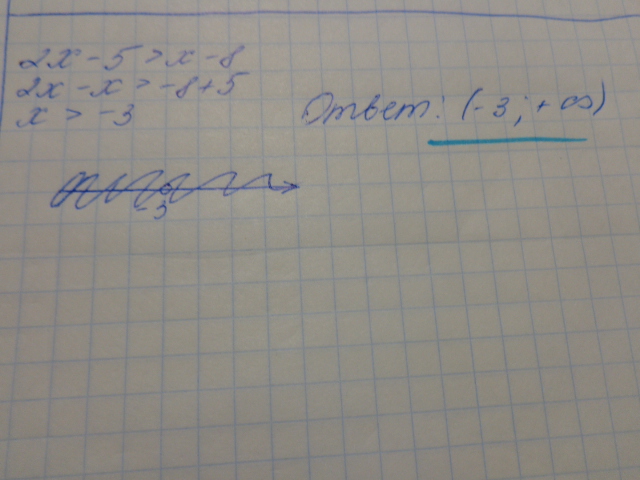 2x - 5 > x - 8
2x - x > -8 + 5
x > -3
Ответ: (-3; +∞)
-3